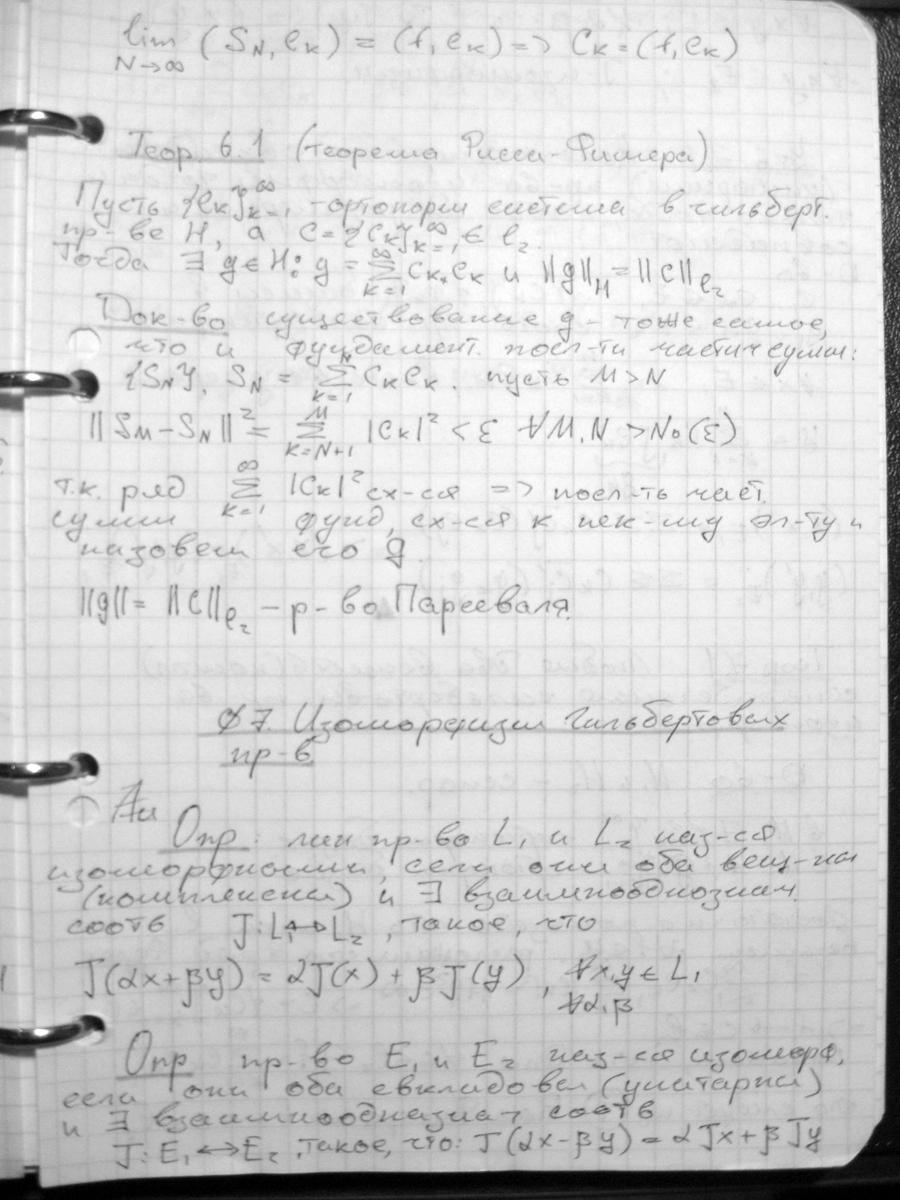 lim (S_N, e_k) = (f, e_k) => C_k = (f, e_k)
N→∞
Теор. 6.1 (теорема Рисса-Фишера)
Пусть {e_k}_{k=1}^∞ - ортонорм система в гильберт.
пр-ве H, а C = {C_k}_{k=1}^∞ ∈ l_2.
Тогда ∃ g ∈ H: g = ∑_{k=1}^∞ C_k·e_k и ||g||_H = ||C||_{l_2}
Док-во существование g - тоже самое,
что и фундамент. посл-ти частич сумм:
{S_N}, S_N = ∑_{k=1}^N C_k e_k. пусть M > N
||S_M - S_N||² = ∑_{k=N+1}^M |C_k|² < ε ∀M,N > N_0(ε)
т.к. ряд ∑_{k=1}^∞ |C_k|² сх-ся => посл-ть част.
сумм фунд, сх-ся к нек-му эл-ту и
назовем его g
||g|| = ||C||_{l_2} - р-во Парсеваля.
§7. Изоморфизм Гильбертовых
пр-в
Опр: лин пр-во L_1 и L_2 наз-ся
изоморфными, если они оба вещ-ны
(комплексны) и ∃ взаимнооднознач.
соотв J: L_1 ↔ L_2, такое, что
J(αx+βy) = αJ(x) + βJ(y), ∀x,y ∈ L_1
∀α,β
Опр пр-во E_1 и E_2 наз-ся изоморф,
если они оба евклидовы (унитарны)
и ∃ взаимнооднознач соотв
J: E_1 ↔ E_2, такое, что: J(αx-βy) = αJx + βJy